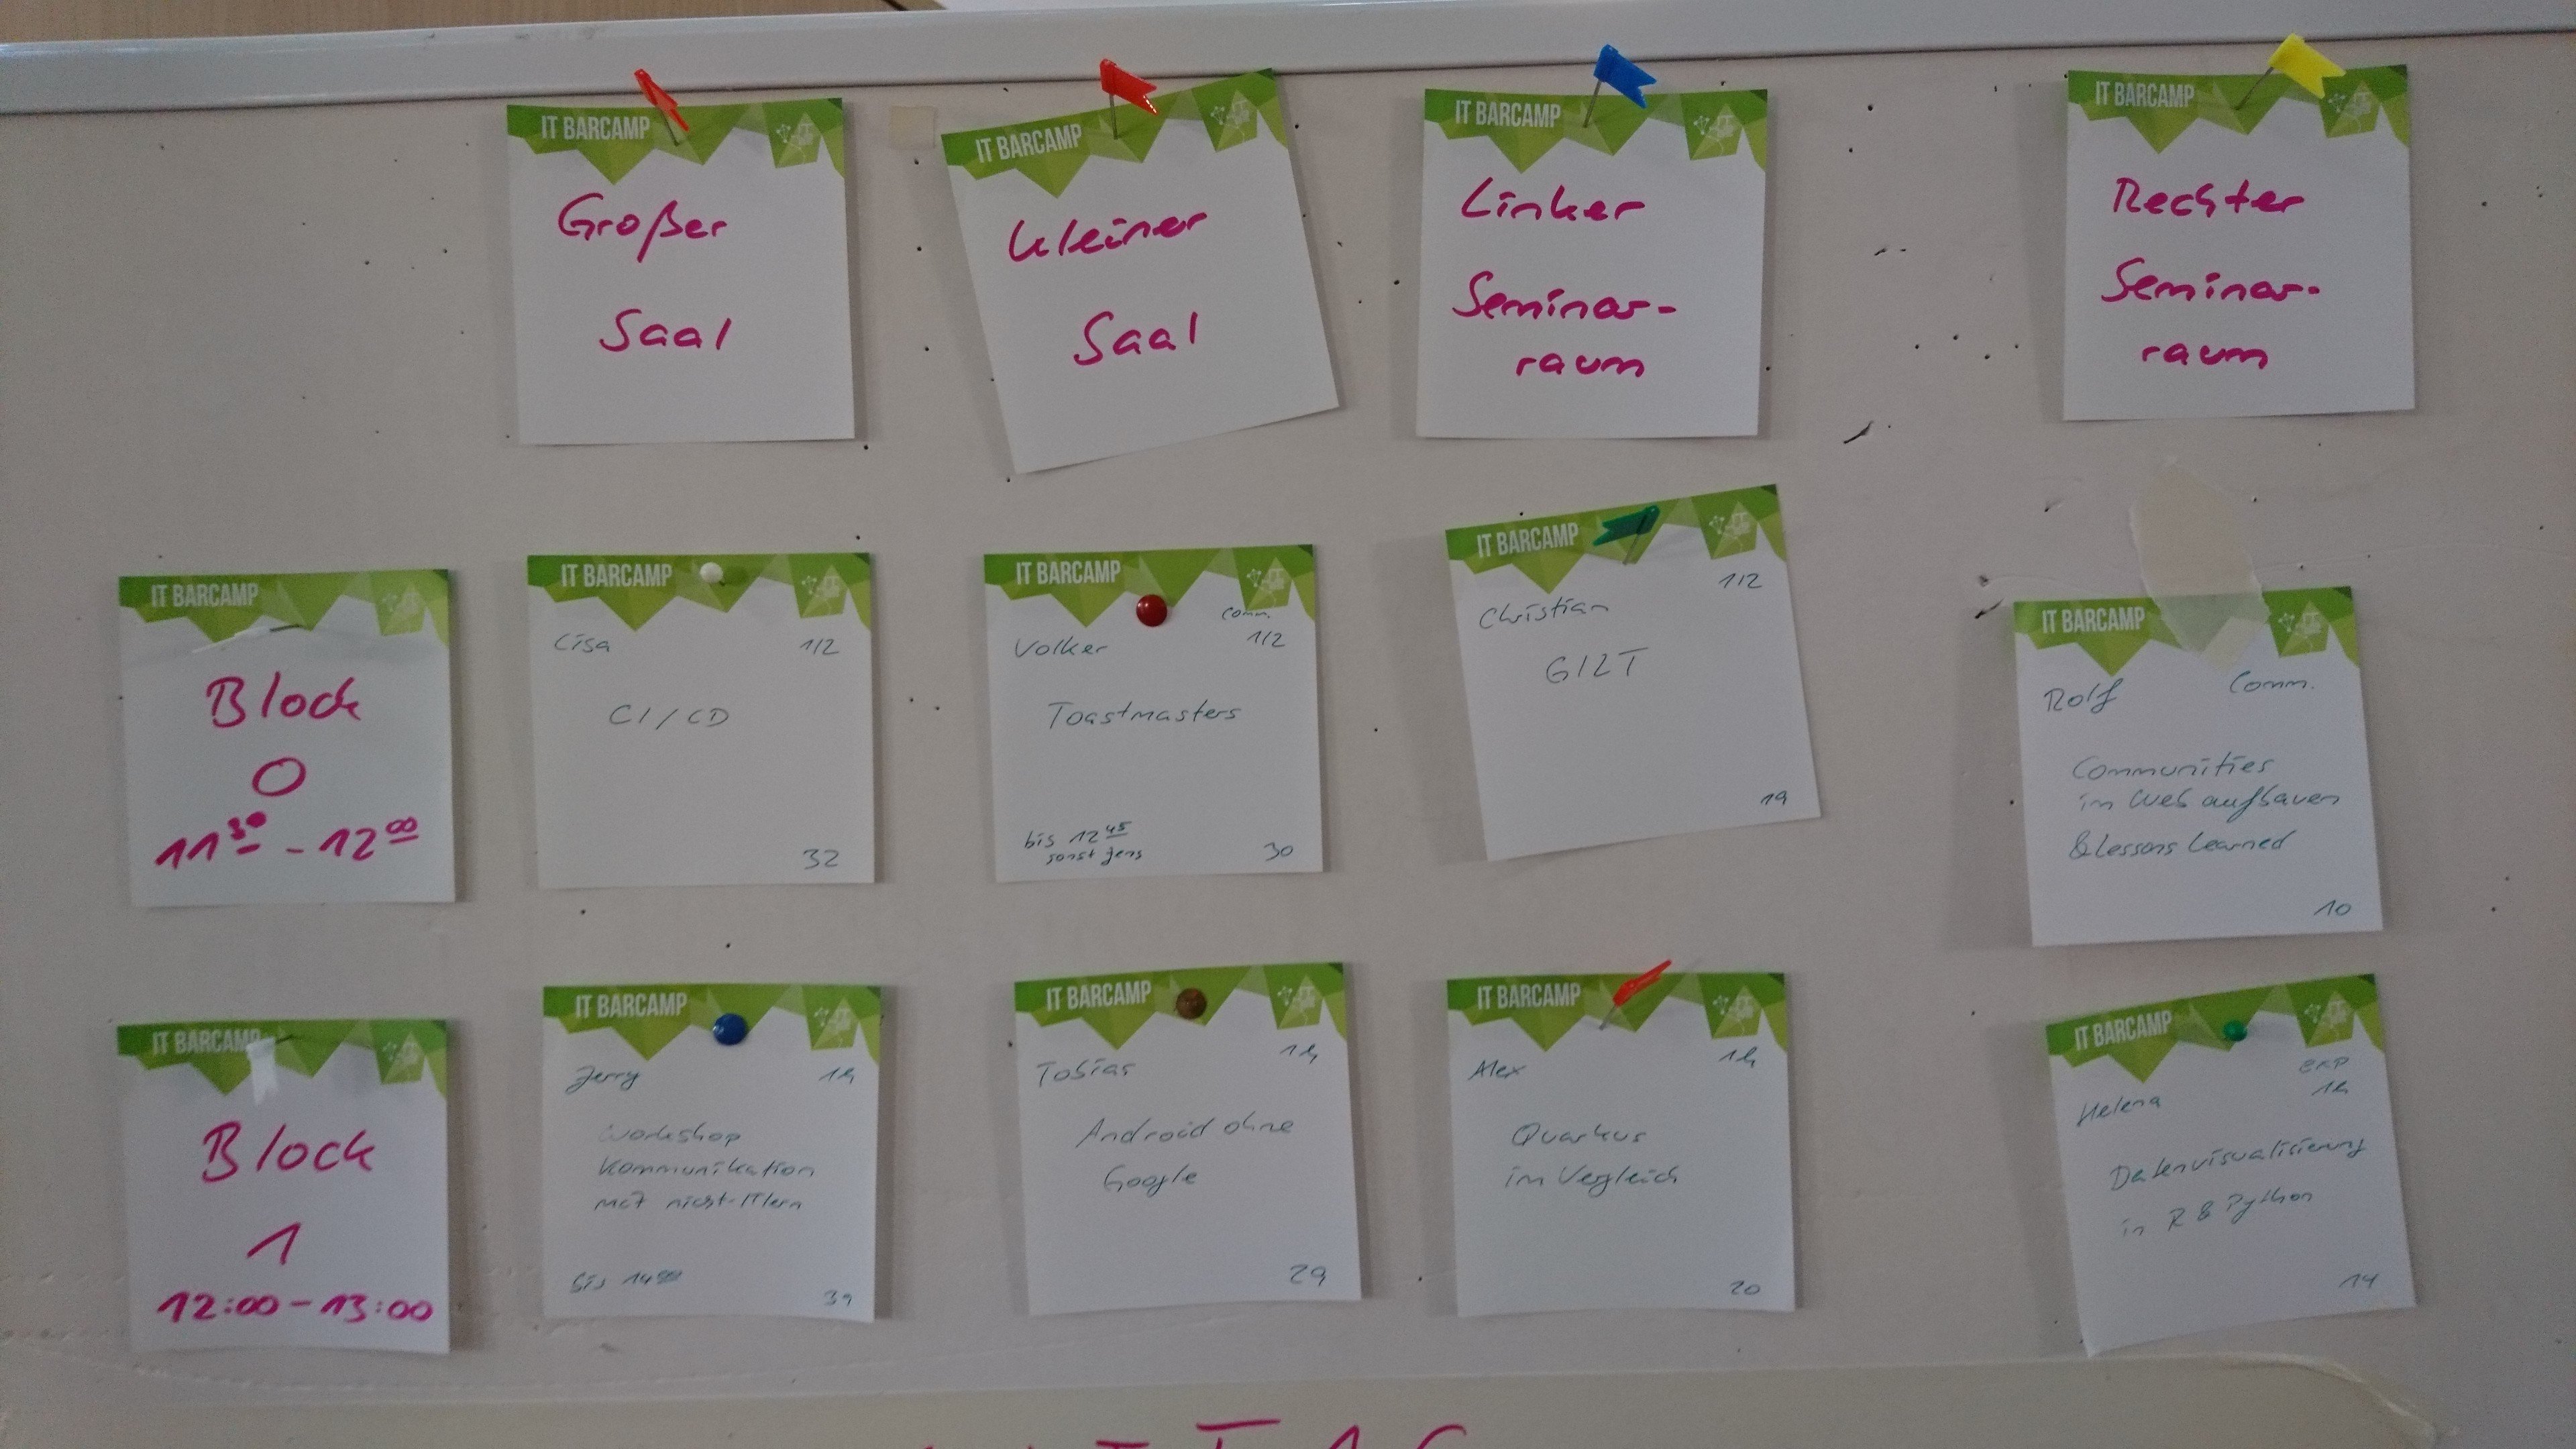 IT BARCAMP
Großer
Saal
IT BARCAMP
Kleiner
Saal
IT BARCAMP
Linker
Seminar-
raum
IT BARCAMP
Rechter
Seminar-
raum
IT BARCAMP
Block
0
11³⁰ - 12⁰⁰
IT BARCAMP
Lisa 1/2
CI/CD
32
IT BARCAMP
Comm.
Volker 1/2
Toastmasters
bis 12⁴⁵
sonst Jens 30
IT BARCAMP
1/2
Christian
GI2T
19
IT BARCAMP
Rolf Comm.
Communities
im Web aufbauen
& Lessons Learned
10
IT BARCAMP
Block
1
12:00 - 13:00
IT BARCAMP
Jerry 1h
Workshop
Kommunikation
mit nicht-ITlern
bis 14⁰⁰
39
IT BARCAMP
1h
Tobias
Android ohne
Google
29
IT BARCAMP
Alex 1h
Quarkus
im Vergleich
20
IT BARCAMP
1h
Helena
Datenvisualisierung
in R & Python
14